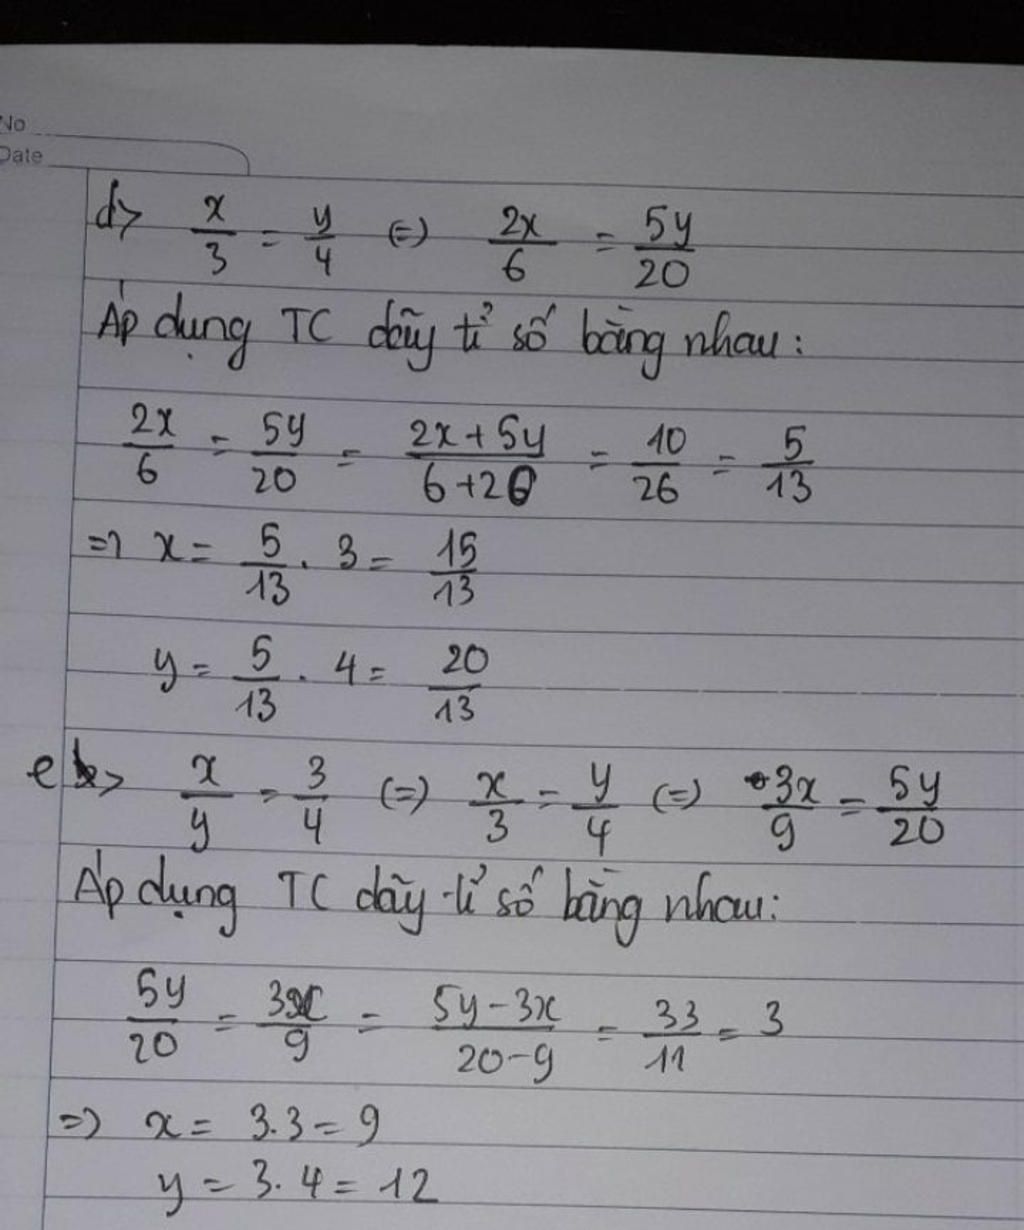 No
Date
d> x/3 = y/4 (=) 2x/6 = 5y/20
Áp dụng TC dãy tỉ số bằng nhau:
2x/6 = 5y/20 = (2x+5y)/(6+20) = 10/26 = 5/13
=> x = 5/13 . 3 = 15/13
y = 5/13 . 4 = 20/13
e> x/y = 3/4 (=) x/3 = y/4 (=) 3x/9 = 5y/20
Áp dụng TC dãy tỉ số bằng nhau:
5y/20 = 3x/9 = (5y-3x)/(20-9) = 33/11 = 3
=> x = 3.3 = 9
y = 3.4 = 12